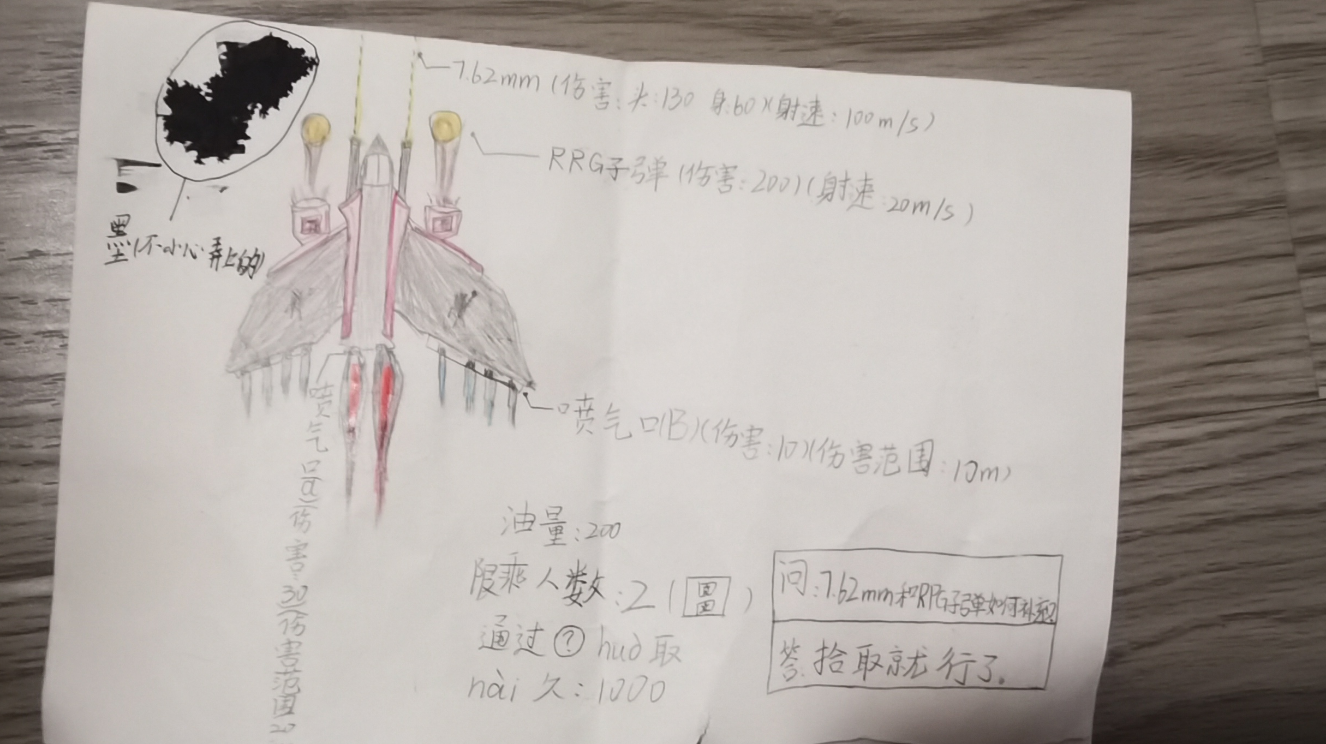 7.62mm(伤害:头:130 身:60)(射速:100m/s)
RRG子弹(伤害:200)(射速:20m/s)
墨(不小心弄上的)
喷气口(B)(伤害:10)(伤害范围:10m)
喷气口(a)(伤害:30)(伤害范围20
油量:200
限乘人数:2(
)
通过?huò取
nài久:1000
问:7.62mm和RPG子弹如何补充?
答:拾取就行了。